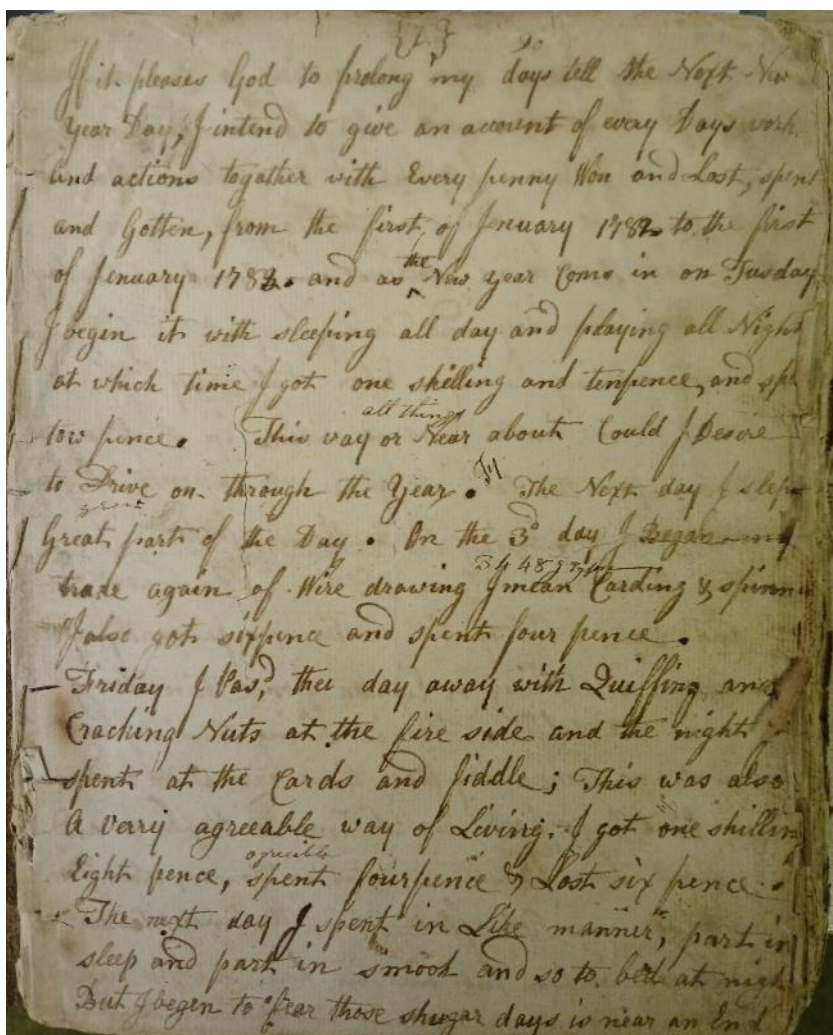 {1}
If it pleases God to prolong my days tell the Next New
Year Day, I intend to give an account of every Days work
and actions togather with Every penny Won and Lost, spent
and Gotten, from the first of Jenuary 1782 to the first
of Jenuary 1783. and as the New year Come in on Tusday
I begin it with sleeping all day and playing all Night
at which time I got one shilling and tenpence, and
tow pence. This way or Near about Could I Desire
all things
to Drive on through the Year. The Next day I slept
great
Great part of the Day. On the 3d day I Began my
trade again of Wire drawing I mean Carding & spinn
I also got sixpence and spent four pence.
Friday I Pasd, the day away with Quiffing and
Cracking Nuts at the fire side and the night
spent at the Cards and fiddle; This was also
A verry agreeable way of Living. I got one shilling
agreible
Eight pence, spent fourpence & Lost six pence.
The next day I spent in Like manner, part in
sleep and part in smook and so to bed at nigh
But I begen to fear those shugar days is near an End